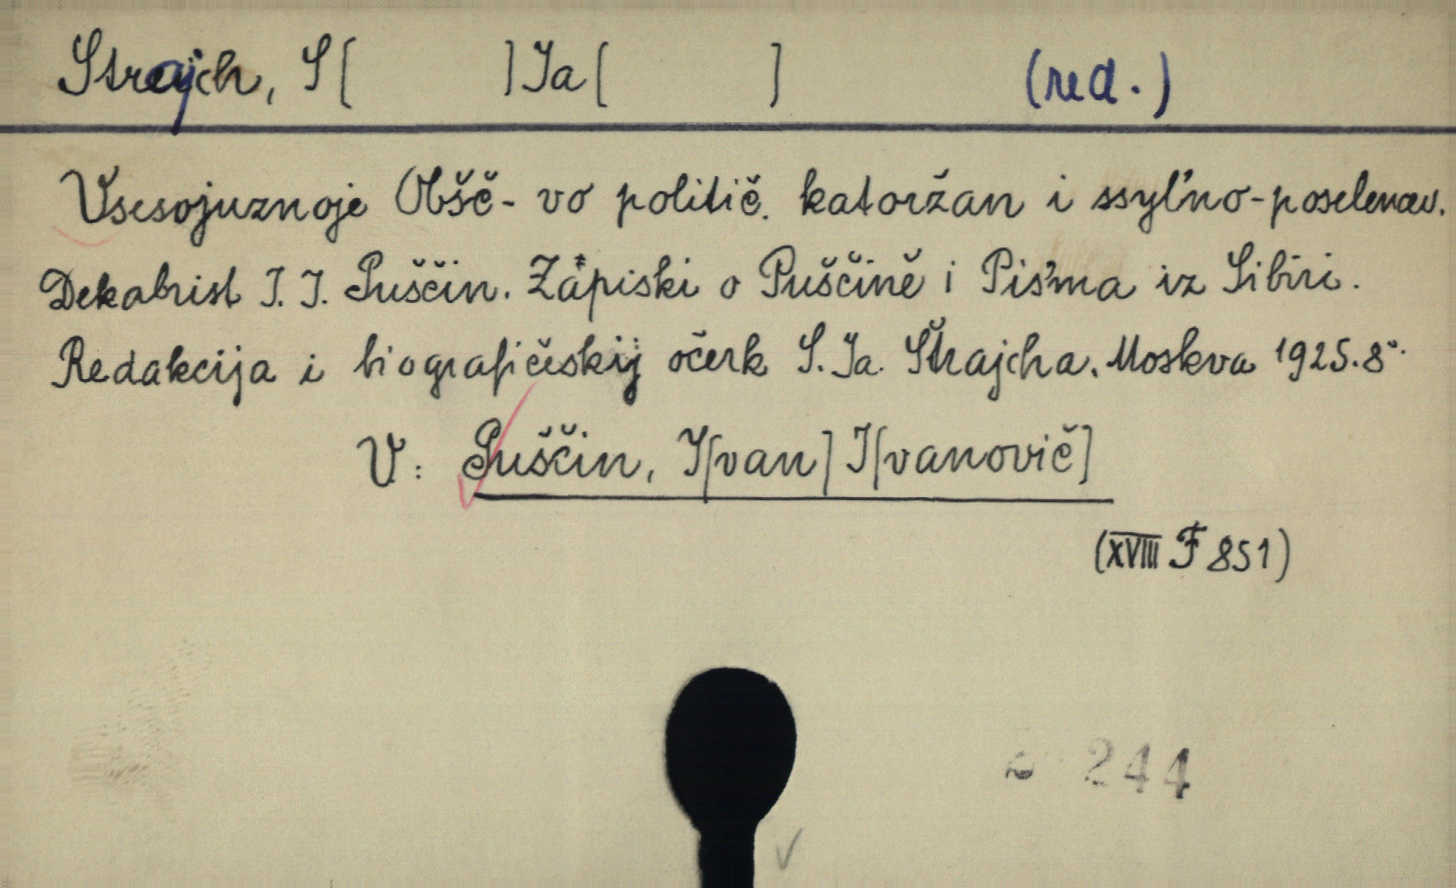 Strajch, S[ ] Ja[ ] (red.)
Vsesojuznoje Obšč-vo politič. katoržan i ssyľno-poselencev.
Dekabrist I. I. Puščin. Zapiski o Puščině i Piśma iz Sibiri.
Redakcija i biografičeskij očerk S. Ja. Štrajcha. Moskva 1925. 8°.
V: Puščin, I[van] I[vanovič]
(XVIII F 851)
244